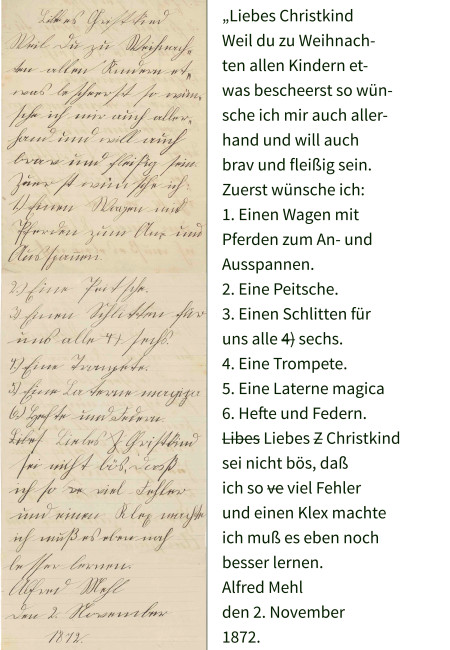 Liebes Christkind
Weil du zu Weihnach-
ten allen Kindern et-
was bescheerst so wün-
sche ich mir auch aller-
hand und will auch
brav und fleißig sein.
Zuerst wünsche ich:
1) Einen Wagen mit
Pferden zum An- und
Ausspannen.
2) Eine Peitsche.
3) Einen Schlitten für
uns alle 4) sechs.
4) Eine Trompete.
5) Eine Laterne magica
6) Hefte und Federn.
Libes Liebes Z Christkind
sei nicht bös, daß
ich so ve viel Fehler
und einen Klex machte
ich muß es eben noch
besser lernen.
Alfred Mehl
den 2. November
1872.
„Liebes Christkind
Weil du zu Weihnach-
ten allen Kindern et-
was bescheerst so wün-
sche ich mir auch aller-
hand und will auch
brav und fleißig sein.
Zuerst wünsche ich:
1. Einen Wagen mit
Pferden zum An- und
Ausspannen.
2. Eine Peitsche.
3. Einen Schlitten für
uns alle 4) sechs.
4. Eine Trompete.
5. Eine Laterne magica
6. Hefte und Federn.
Libes Liebes Z Christkind
sei nicht bös, daß
ich so ve viel Fehler
und einen Klex machte
ich muß es eben noch
besser lernen.
Alfred Mehl
den 2. November
1872.